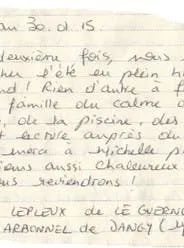 au 30. d. 15.
deuxième fois, nous
l'été en plein
! Rien d'autre à f
famille du calme d
, de la piscine, des
lecture auprès du
à Michelle p
aussi chaleureux
reviendrons !
LEPLEUX de LE GUERNO
ARBONNEL de DANGY (